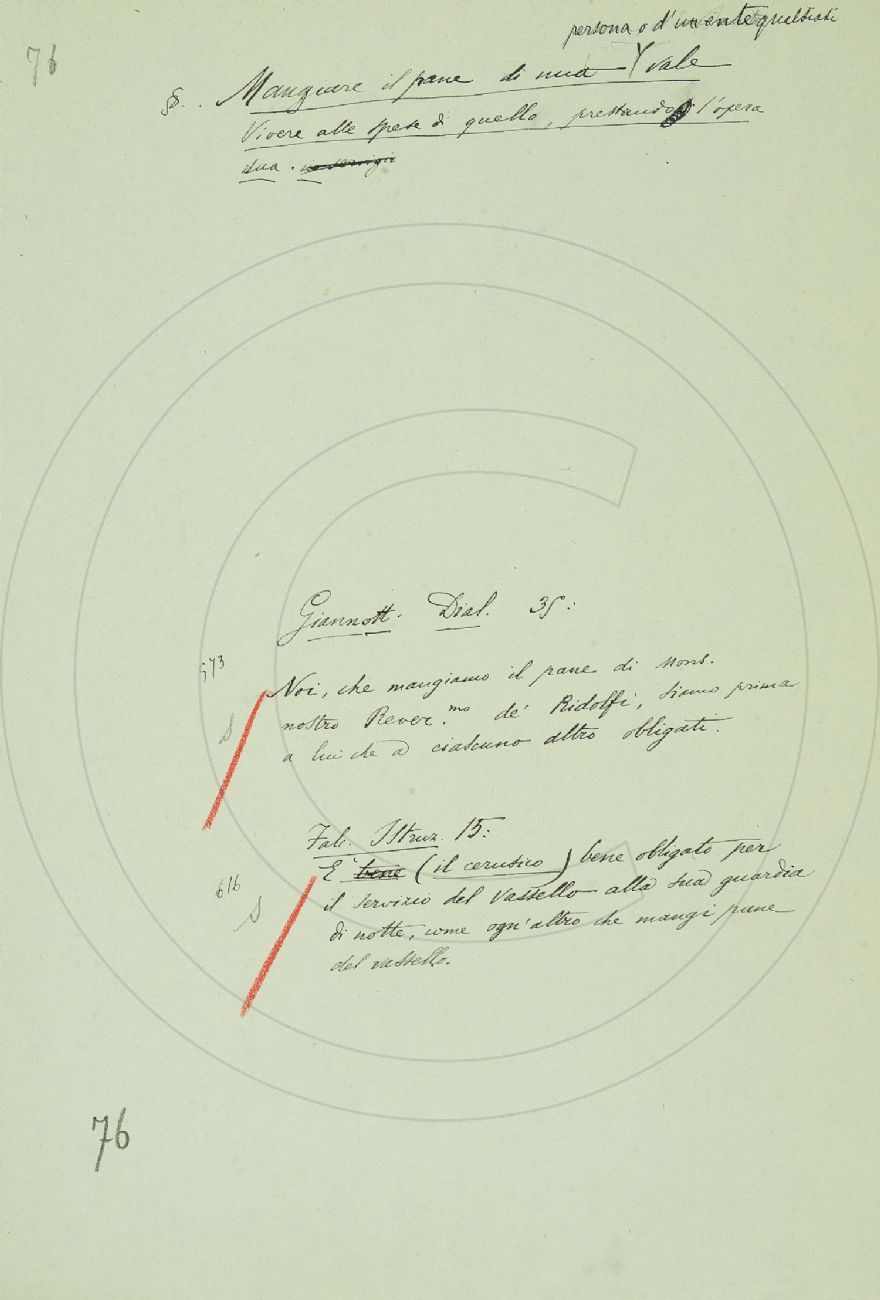 persona o d'un ente qualsiasi
76
§. Mangiare il pane di una Y vale
Vivere alle spese di quello, prestando l'opera
sua. in servigio
Giannott. Dial. 35:
573
Noi, che mangiamo il pane di mons.
nostro Rever.mo de' Ridolfi, siamo prima
S
a lui che a ciascuno altro obligati.
Fal. Istruz. 15:
616
E' bene (il cerusico) bene obligato per
il servizio del vassello alla sua guardia
S
di notte, come ogn'altro che mangi pane
del vassello.
76